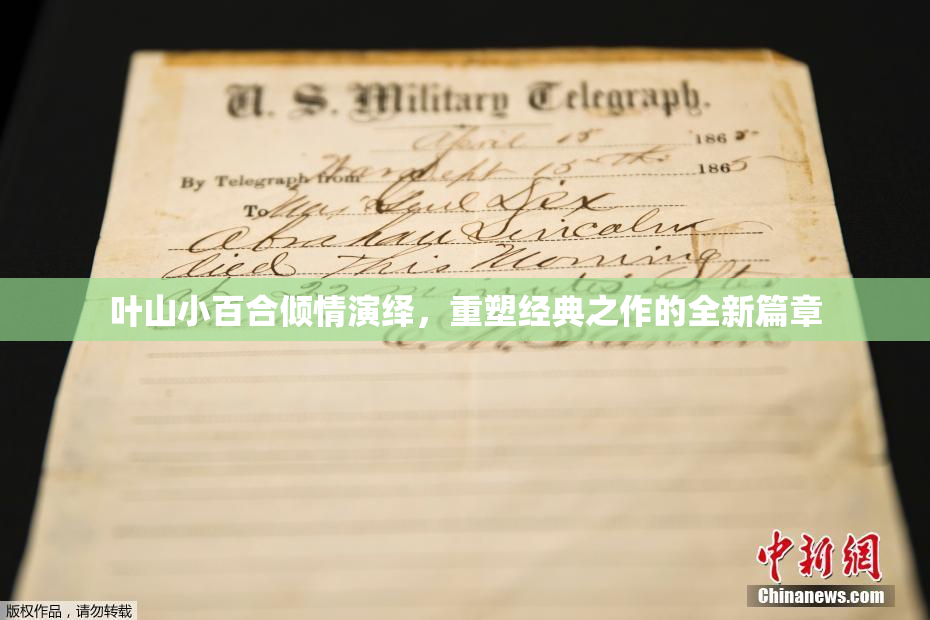 U. S. Military Telegraph.
April 15 1865
By Telegraph from War Dept 15th 1865
To Maj Genl Dix
Abraham Lincoln
died This Morning
22 minutes after
叶山小百合倾情演绎，重塑经典之作的全新篇章
E. M. Stanton
中新网
Chinanews.com
版权作品，请勿转载